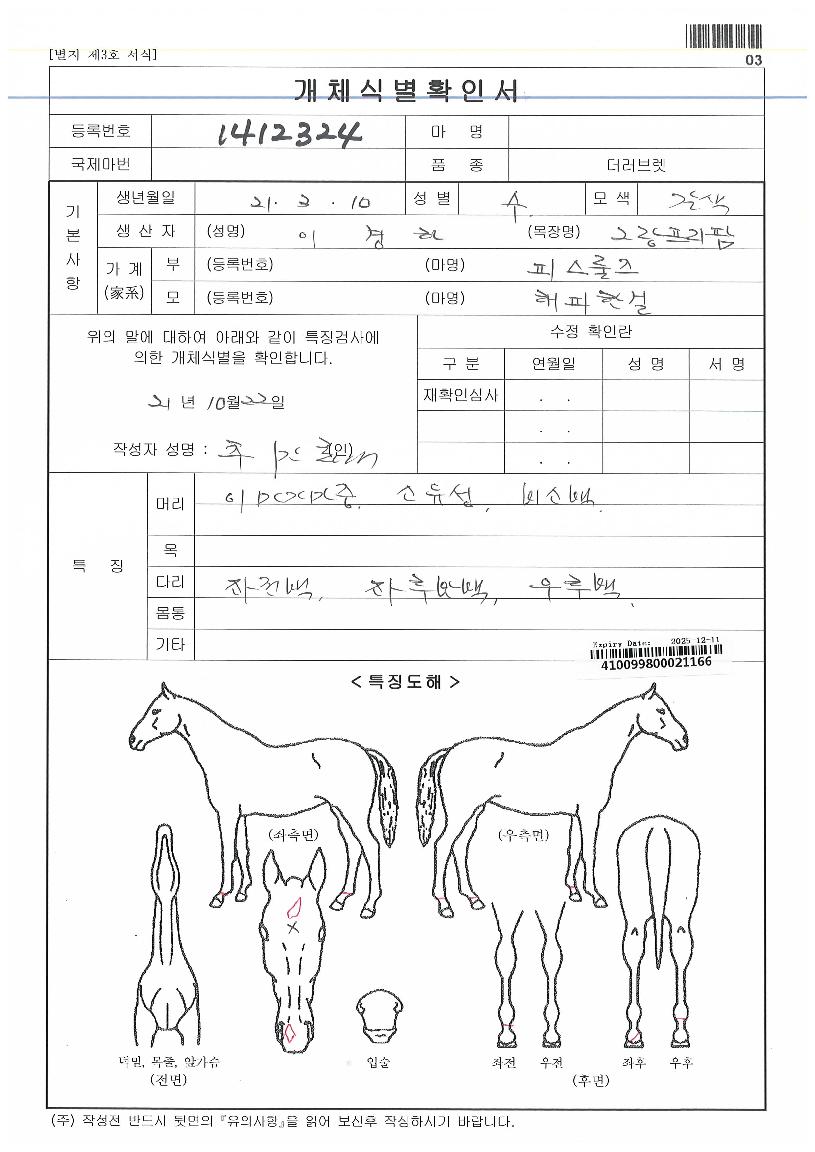 03
[별지 제3호 서식]
개체식별확인서
등록번호 1412324 마 명
국제마번 품 종 더러브렛
기본사항
생년월일 21. 3. 10 성 별 수 모 색 갈색
생 산 자 (성명) 이 경 하 (목장명) 그랑프리팜
가 계 (家系) 부 (등록번호) (마명) 피스룰즈
모 (등록번호) (마명) 해피한설
위의 말에 대하여 아래와 같이 특징검사에
의한 개체식별을 확인합니다.
21 년 10월 22일
작성자 성명 : (인)
수정 확인란
구 분 연월일 성 명 서 명
재확인심사 . .
. .
. .
특 징
머리 소유성, 비소백.
목
다리 좌후 백, 우후백.
몸통
기타
Expiry Date: 2025-12-11
410099800021166
< 특징도해 >
(좌측면) (우측면)
턱밑, 목줄, 앞가슴 입술 좌전 우전 좌후 우후
(전면) (후면)
(주) 작성전 반드시 뒷면의 『유의사항』을 읽어 보신후 작성하시기 바랍니다.